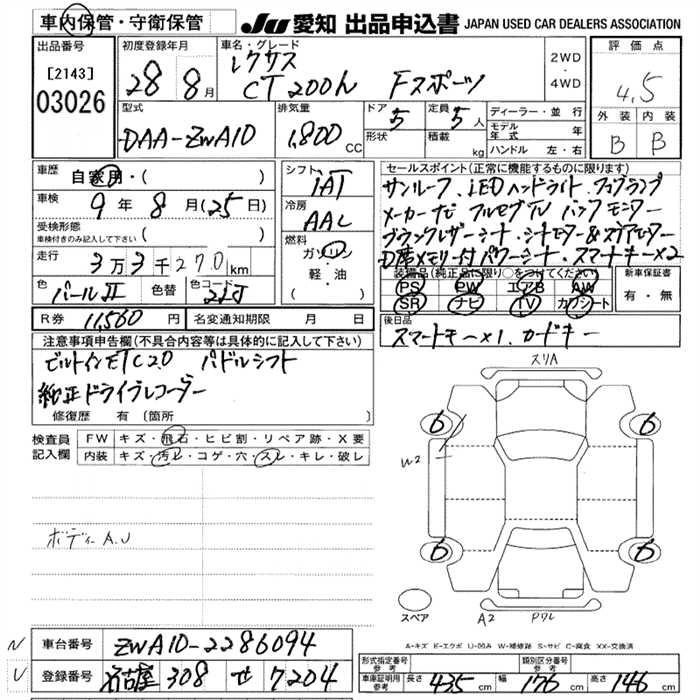 車内保管・守衛保管
JU 愛知 出品申込書 JAPAN USED CAR DEALERS ASSOCIATION
出品番号
[2143]
03026
初度登録年月
28 8月
車名・グレード
レクサス
CT 200h Fスポーツ
2WD
・
4WD
評価点
4.5
外装 内装
B B
型式
DAA-ZWA10
排気量
1,800 CC
ドア 5
形状
定員 5人
積載 kg
ディーラー・並行
モデル年式 年
ハンドル 左・右
車歴
自家用・( )
車検
9年 8月(25日)
受検形態
車検付きのみ記入して下さい ( )
走行
3万3千270km
色
パールII
色替
色コード
2LJ
シフト
IAT
冷房
AAC
燃料
ガソリン
・
軽・油
セールスポイント(正常に機能するものに限ります)
サンルーフ.LEDヘッドライト.フォグランプ
メーカーナビ フルセグTV バックモニター
ブラックレザーシート.シートヒーター&エアヒーター
D席メモリー付パワーシート.スマートキー×2
装備品(純正品に限り○をつけてください)
PS PW エアB AW
SR ナビ TV カワシート
新車保証書
有・無
R券 11,560円 名変通知期限 月 日
後日品
スマートキー×1.カードキー
注意事項申告欄(不具合内容等は具体的に記入して下さい)
ビルトインETC2.0 パドルシフト
純正ドライブレコーダー
修復歴 有 〔箇所 〕
検査員
記入欄
FW キズ・飛石・ヒビ割・リペア跡・X要
内装 キズ・汚レ・コゲ・穴・スレ・キレ・破レ
ボディーA.U
スリA
6 6
W2
6 6
スペア
A2
A-キズ E-エクボ U-凹A W-補修跡 S-サビ C-腐食 XX-交換済
N 車台番号 ZWA10-2286094
U 登録番号 名古屋 308 せ 7204
形式指定番号
参考
類別区分番号
参考
車庫証明用
参考
長さ 435 cm 幅 176 cm 高さ 146 cm